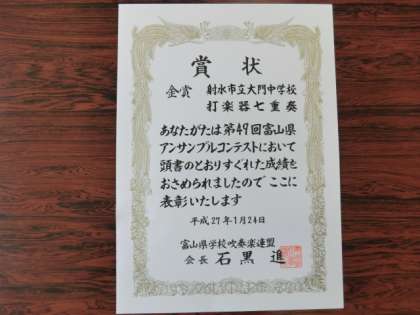 賞状
金賞 射水市立大門中学校
打楽器七重奏
あなたがたは第49回富山県
アンサンブルコンテストにおいて
頭書のとおりすぐれた成績を
おさめられましたので ここに
表彰いたします
平成27年1月24日
富山県学校吹奏楽連盟
会長 石黒 進